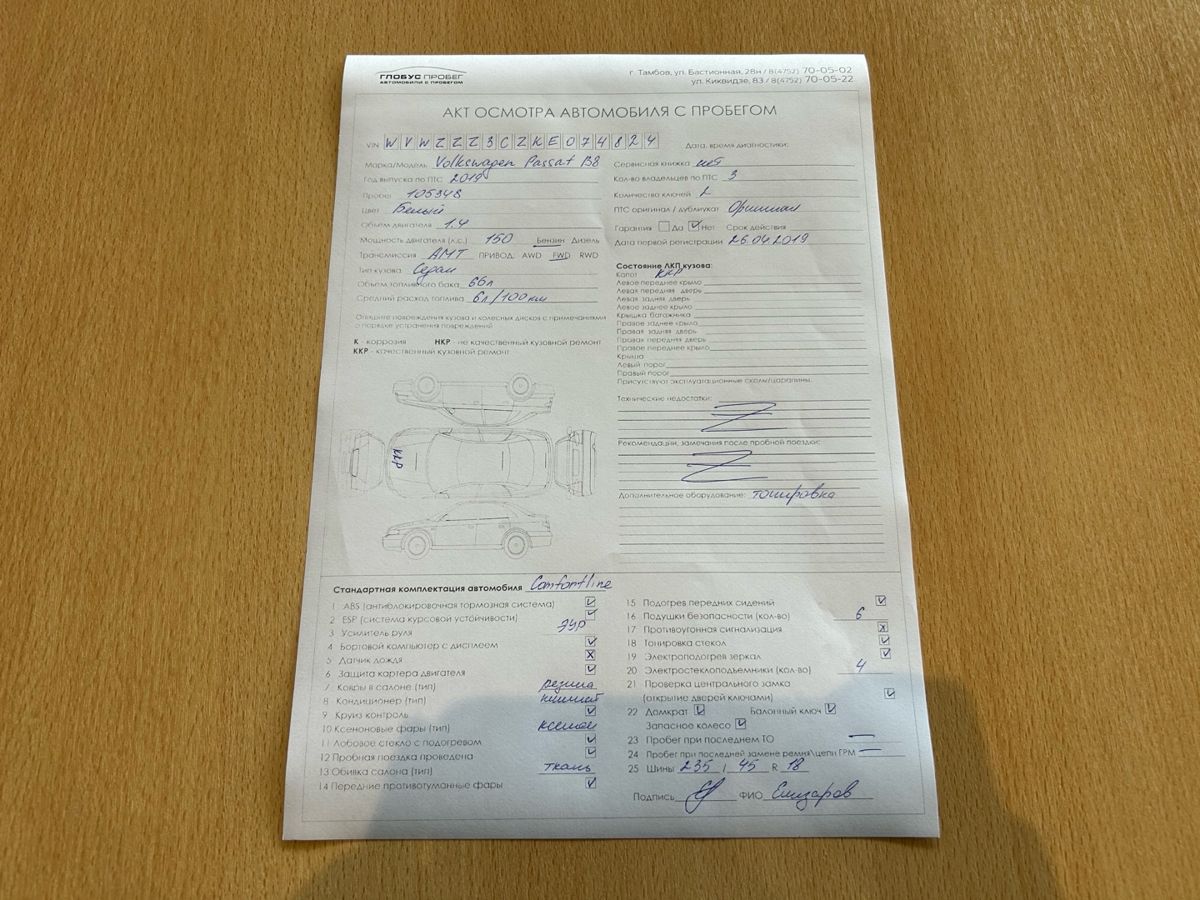 ГЛОБУС ПРОБЕГ
АВТОМОБИЛИ С ПРОБЕГОМ
г. Тамбов, ул. Бастионная, 28н / 8(4752) 70-05-02
ул. Киквидзе, 83 / 8(4752) 70-05-22
АКТ ОСМОТРА АВТОМОБИЛЯ С ПРОБЕГОМ
VIN WVWZZZ3CZKE074824
Марка/Модель Volkswagen Passat B8
Год выпуска по ПТС 2019
Пробег 105348
Цвет Белый
Объем двигателя 1.4
Мощность двигателя (л.с.) 150 Бензин Дизель
Трансмиссия АМТ ПРИВОД: AWD FWD RWD
Тип кузова Седан
Объем топливного бака 66л
Средний расход топлива 6л/100км
Опишите повреждения кузова и колесных дисков с примечаниями
о порядке устранения повреждений
К - коррозия НКР - не качественный кузовной ремонт
ККР - качественный кузовной ремонт
ККР
Дата, время диагностики:
Сервисная книжка нет
Кол-во владельцев по ПТС 3
Количество ключей
ПТС оригинал / дубликат Оригинал
Гарантия Да Нет Срок действия
Дата первой регистрации 26.04.2019
Состояние ЛКП кузова:
Капот ККР
Левое переднее крыло
Левая передняя дверь
Левая задняя дверь
Левое заднее крыло
Крышка багажника
Правое заднее крыло
Правая задняя дверь
Правая передняя дверь
Правое переднее крыло
Крыша
Левый порог
Правый порог
Присутствуют эксплуатационные сколы/царапины.
Технические недостатки:
Рекомендации, замечания после пробной поездки:
Дополнительное оборудование: тонировка
Стандартная комплектация автомобиля Comfortline
1 ABS (антиблокировочная тормозная система)
2 ESP (система курсовой устойчивости)
3 Усилитель руля ЭУР
4 Бортовой компьютер с дисплеем
5 Датчик дождя
6 Защита картера двигателя
7 Ковры в салоне (тип) резина
8 Кондиционер (тип) климат
9 Круиз контроль
10 Ксеноновые фары (тип) ксенон
11 Лобовое стекло с подогревом
12 Пробная поездка проведена
13 Обивка салона (тип) ткань
14 Передние противотуманные фары
15 Подогрев передних сидений
16 Подушки безопасности (кол-во) 6
17 Противоугонная сигнализация
18 Тонировка стекол
19 Электроподогрев зеркал
20 Электростеклоподъемники (кол-во) 4
21 Проверка центрального замка
(открытие дверей ключами)
22 Домкрат Балонный ключ
Запасное колесо
23 Пробег при последнем ТО —
24 Пробег при последней замене ремня\цепи ГРМ —
25 Шины 235 / 45 R 18
Подпись ФИО Елизаров